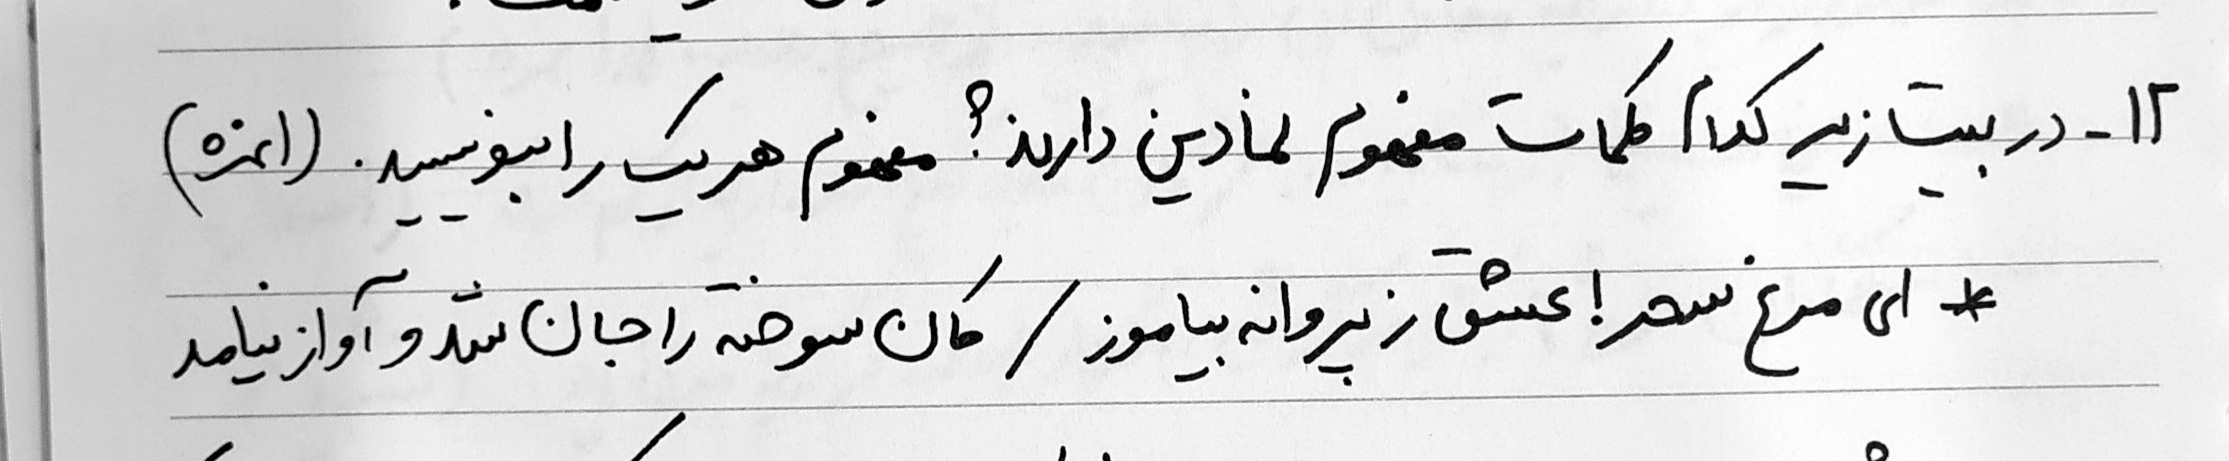 ۱۲- در بیت زیر کدام کلمات مفهوم نمادین دارند؟ مفهوم هر یک را بنویسید. (۱نمره)
* ای مرغ سحر! عشق ز پروانه بیاموز / کان سوخته را جان شد و آواز نیامد